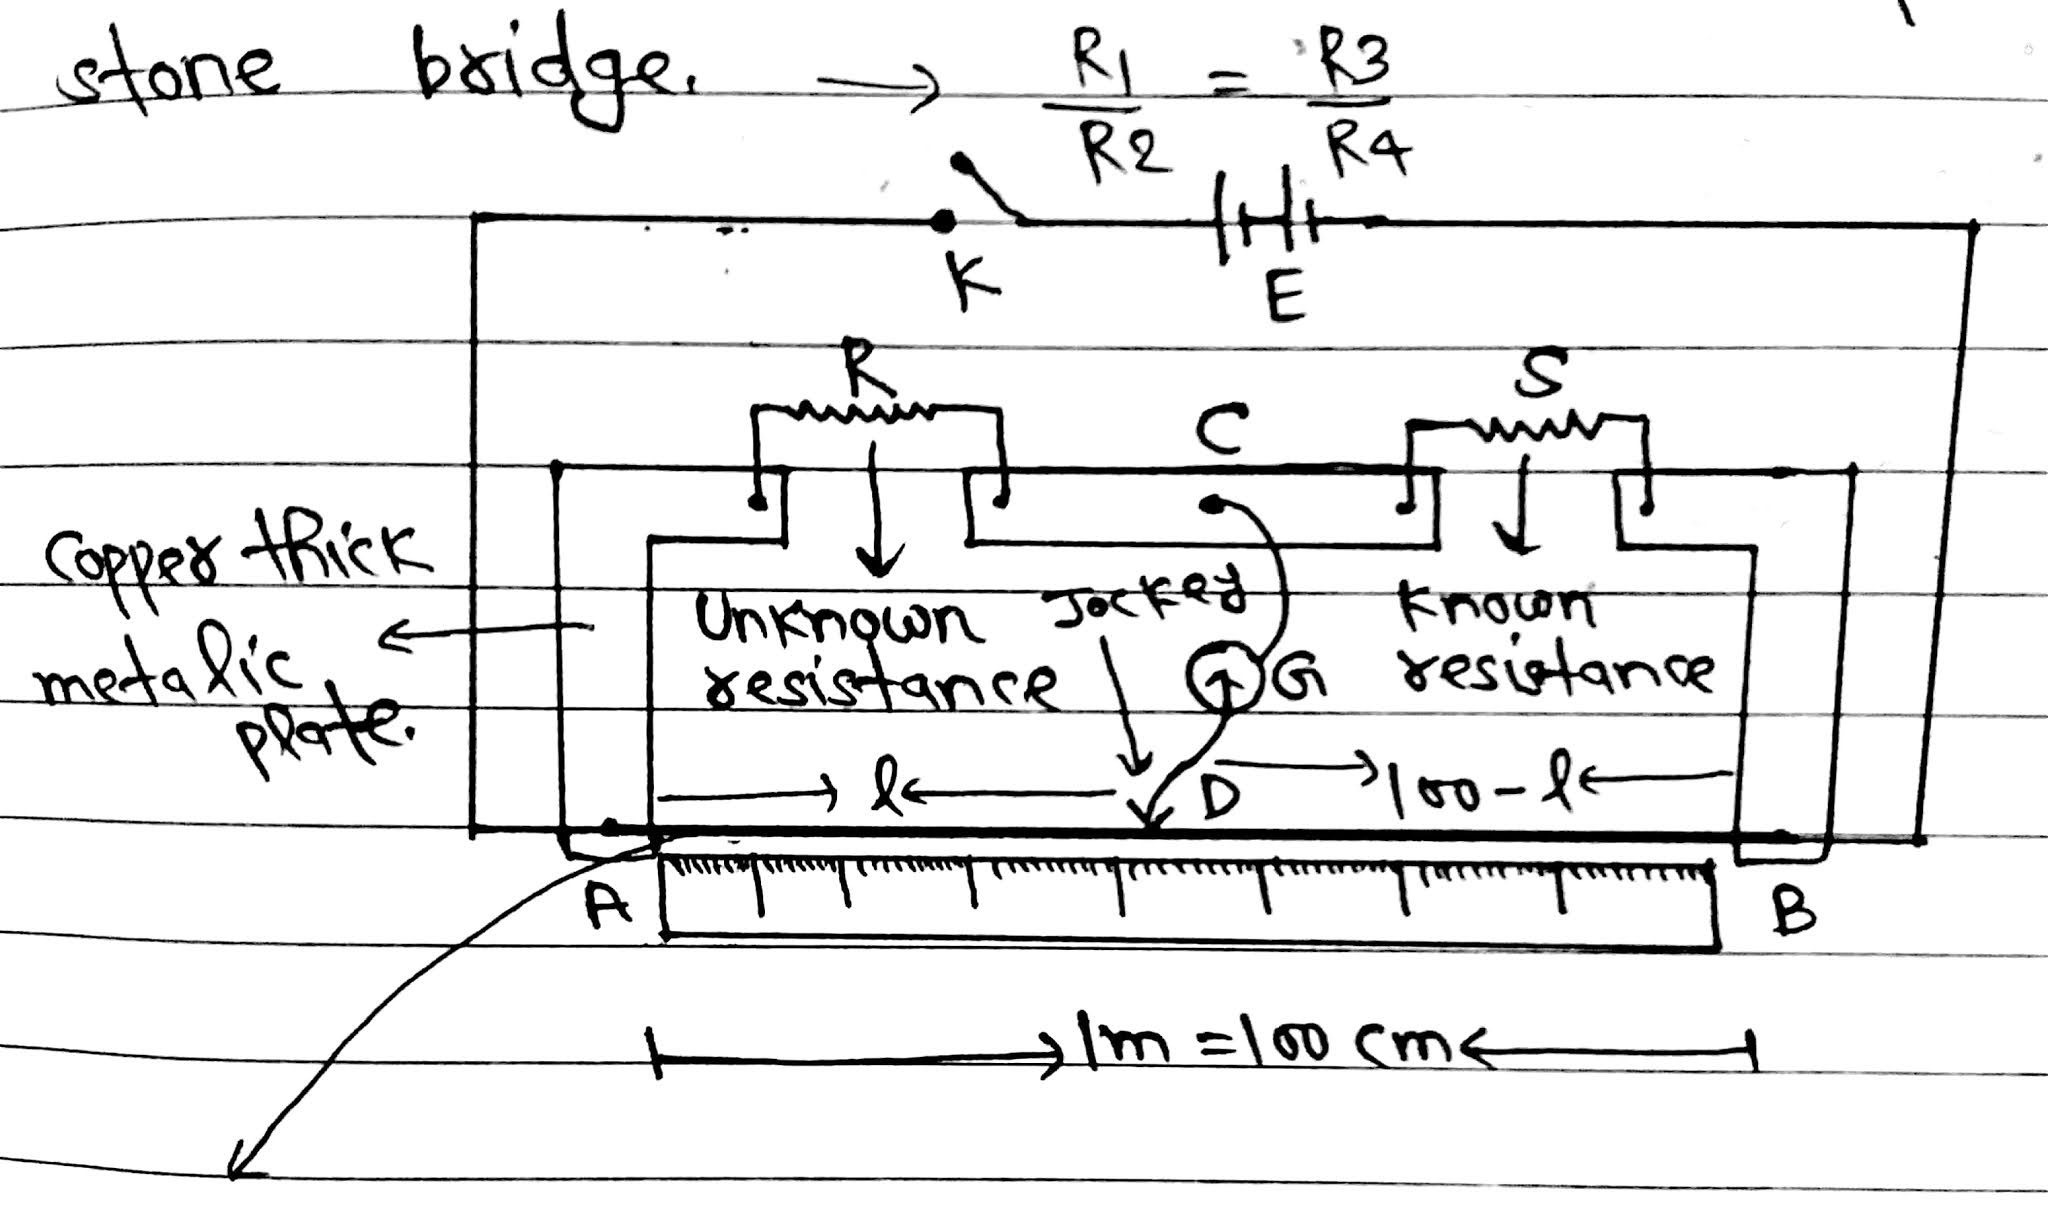 stone bridge. → R1/R2 = R3/R4
K
E
R
S
C
Copper thick
metalic
plate.
Unknown
resistance
Jockey
G
Known
resistance
l
D
100-l
A
B
1m = 100 cm